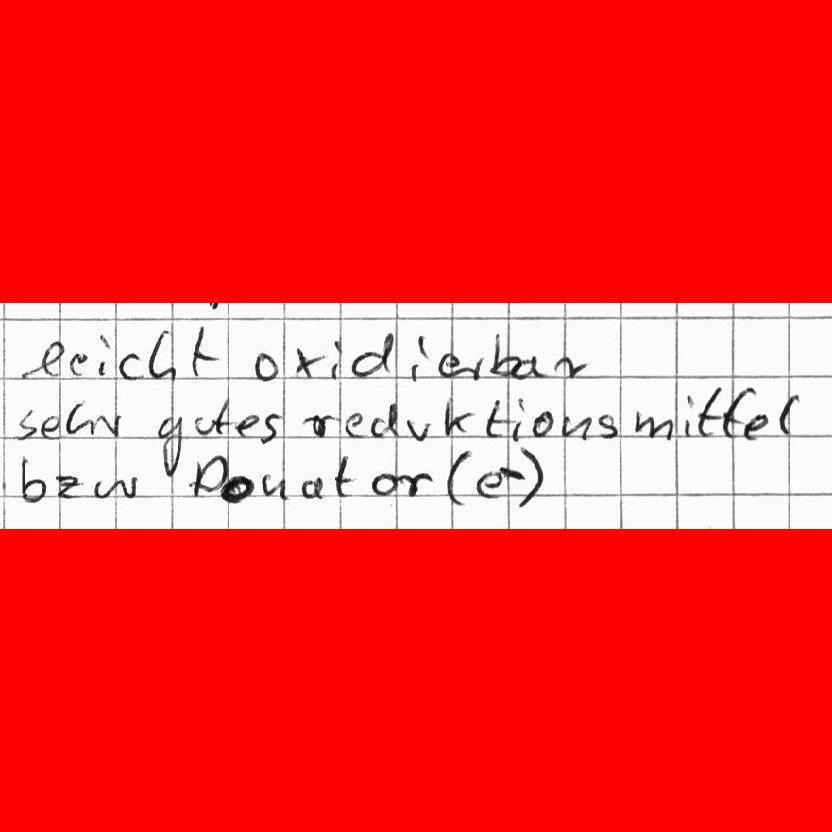 leicht oxidierbar
sehr gutes reduktionsmittel
bzw Donator (e⁻)